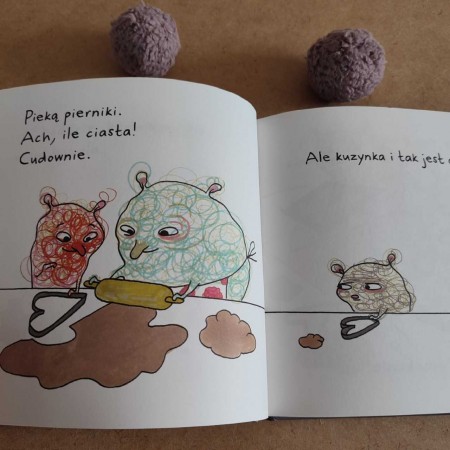 Pieką pierniki.
Ach, ile ciasta!
Cudownie.
Ale kuzynka i tak jest